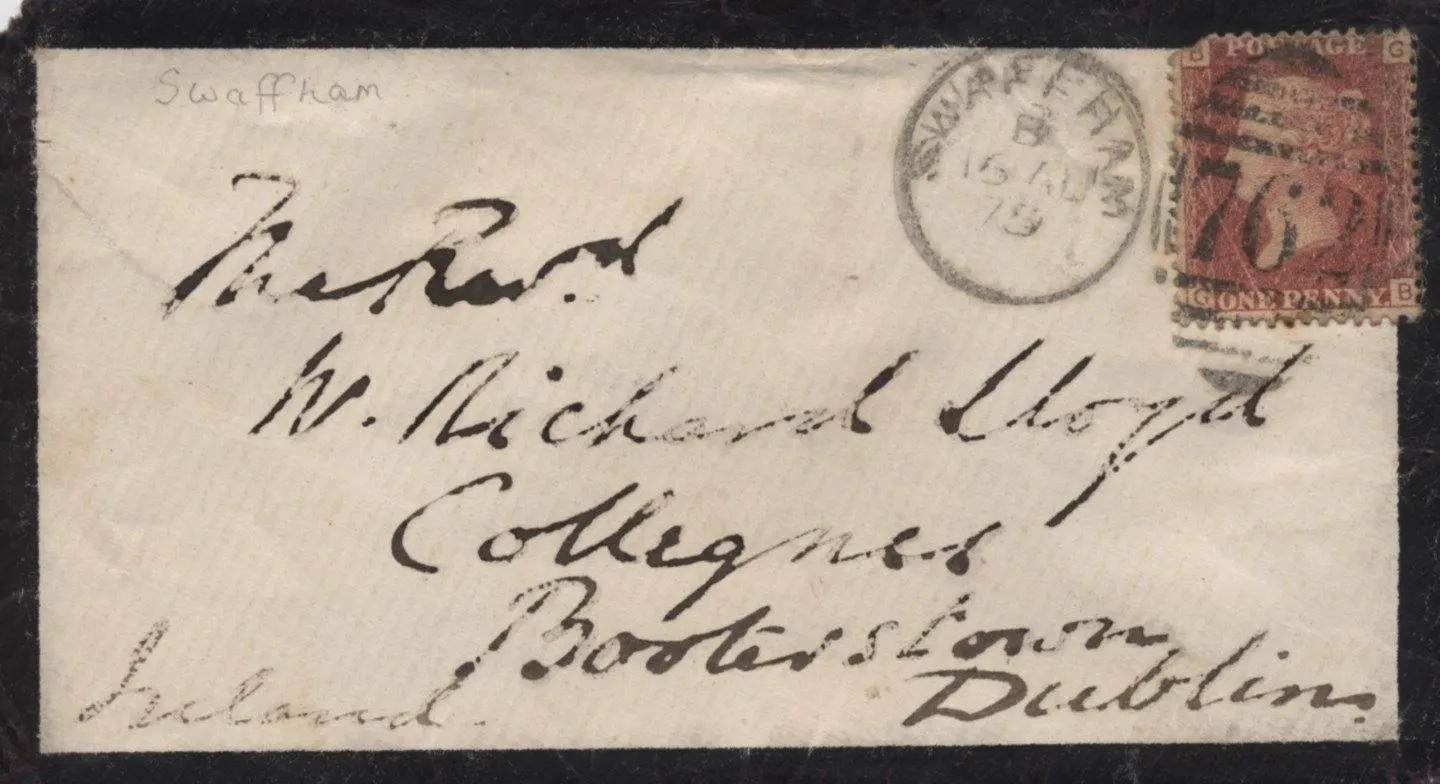 Swaffham
SWAFFHAM
B
16 AU
79
B POSTAGE G
762
G ONE PENNY. B
The Revd
W. Richard Lloyd
Booterstown
Dublin.
Ireland.